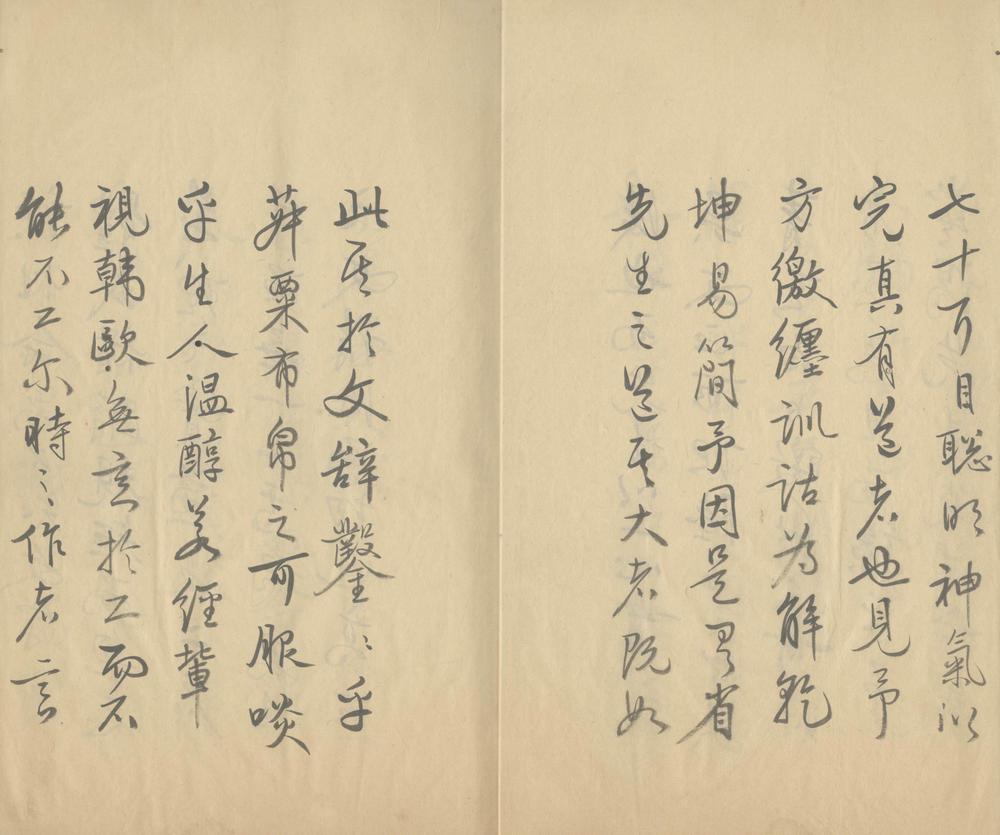 七十耳目聰明神氣以
完真有道者也見予
方繳纏訓詁為解乾
坤易簡予因是畧省
先生之道其大者既如
此其於文辭鑿〻乎
菽粟布帛之可服啖
乎生人温醇若經輩
視韓歐無意於工而不
能不工尔時〻作者言